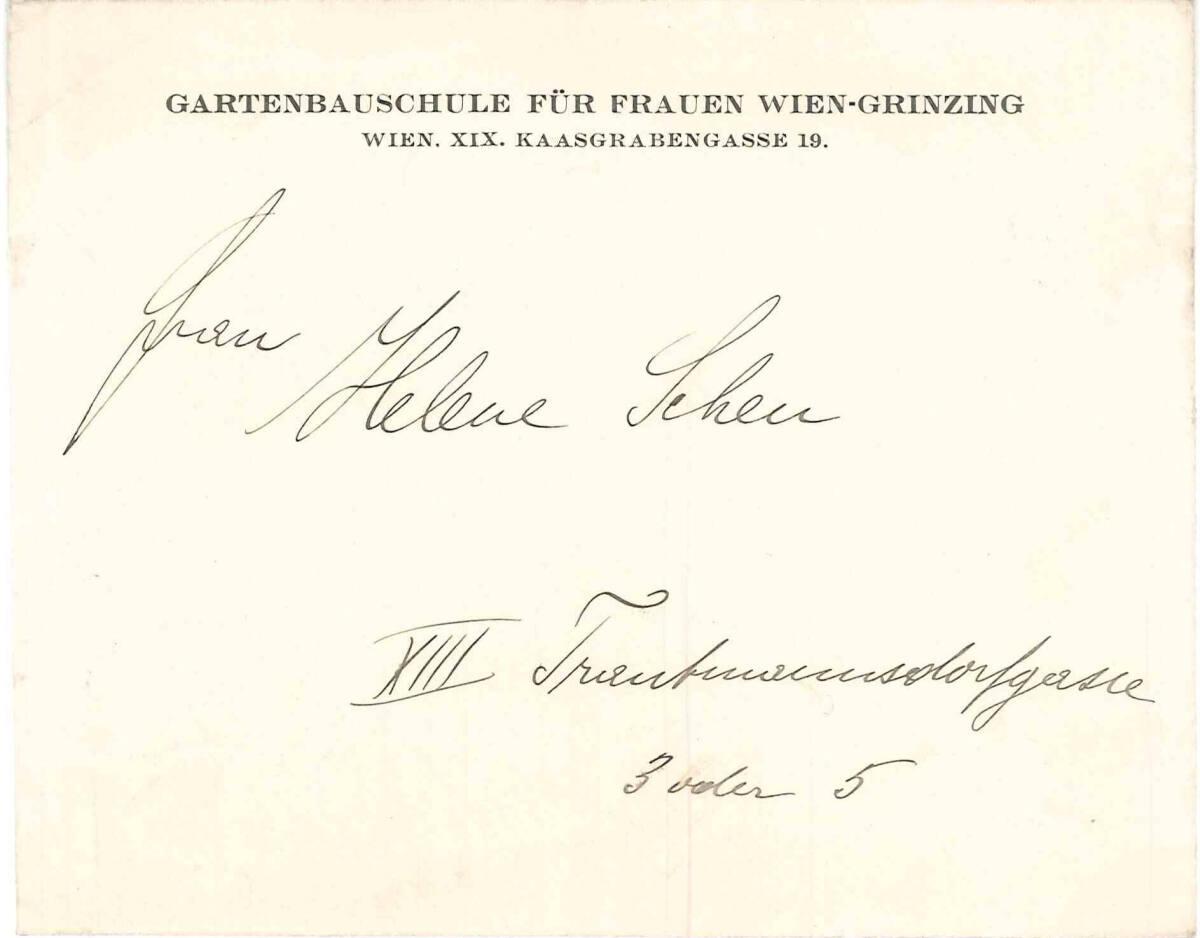 GARTENBAUSCHULE FÜR FRAUEN WIEN-GRINZING
WIEN. XIX. KAASGRABENGASSE 19.
Frau
Helene Scheu
XIII Trautmannsdorfgasse
3 oder 5